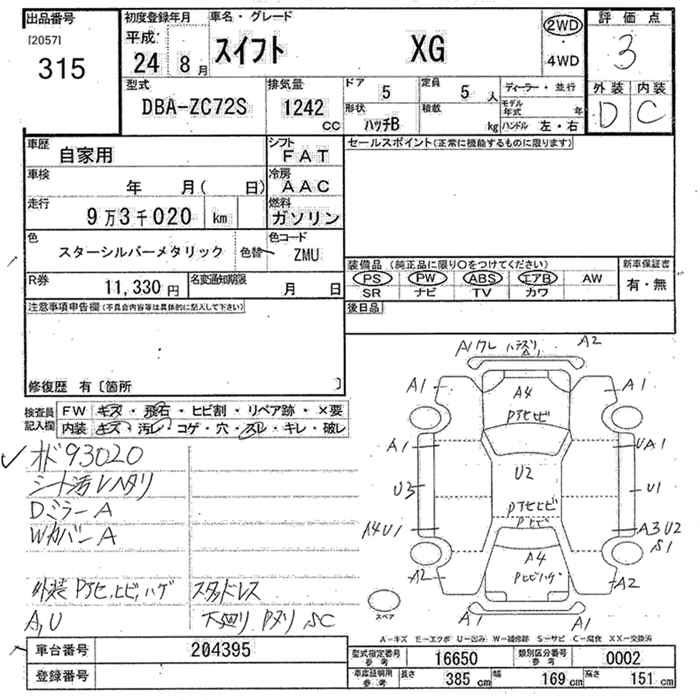 出品番号
[2057]
315
初度登録年月
平成
24 8月
車名・グレード
スイフト XG
2WD
4WD
評価点
3
外装 内装
D C
型式
DBA-ZC72S
排気量
1242 CC
ドア 5
定員 5 人
形状 ハッチB
積載 kg
ディーラー・並行
モデル年式 年
ハンドル 左・右
車歴 自家用
シフト FAT
車検 年 月( 日)
冷房 AAC
走行 9万3千020 km
燃料 ガソリン
色 スターシルバーメタリック 色替
色コード ZMU
R券 11,330円
名変通知期限 月 日
セールスポイント(正常に機能するものに限ります)
装備品(純正品に限り○をつけてください)
PS PW ABS エアB AW
SR ナビ TV カワ
新車保証書
有・無
後日品
注意事項申告欄(不具合内容等は具体的に記入して下さい)
修復歴 有〔箇所 〕
検査員記入欄
FW キズ・飛石・ヒビ割・リペア跡・×要
内装 キズ・汚レ・コゲ・穴・スレ・キレ・破レ
オド93020
シート汚レヘタリ
DミラーA
WカバーA
外装 PタヒヒビハゲA,U
スタッドレス
下廻り Pヌリ SC
A1 ワレ ハデスリ A1 A2
A1 A4 A1
Pタヒヒビ
A1 UA1
U3 U2 U1
Pタヒヒビ
Pヒビ
A4U1 A3U2
S1
A2 A4 A2
Pヒビハゲ
A1 A1
スペア
A-キズ E-エクボ U-凹み W-補修跡 S-サビ C-腐食 XX-交換済
車台番号 204395
登録番号
型式指定番号 参考 16650
類別区分番号 参考 0002
車庫証明用 参考 長さ 385 cm 幅 169 cm 高さ 151 cm